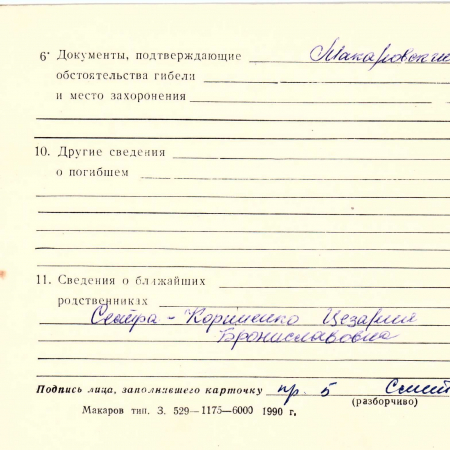 6. Документы, подтверждающие
обстоятельства гибели
и место захоронения
10. Другие сведения
о погибшем
11. Сведения о ближайших
родственниках
Сестра - Корниенко Цезария
Брониславовна
Подпись лица, заполнявшего карточку пр. 5
(разборчиво)
Макаров тип. З. 529—1175—6000 1990 г.